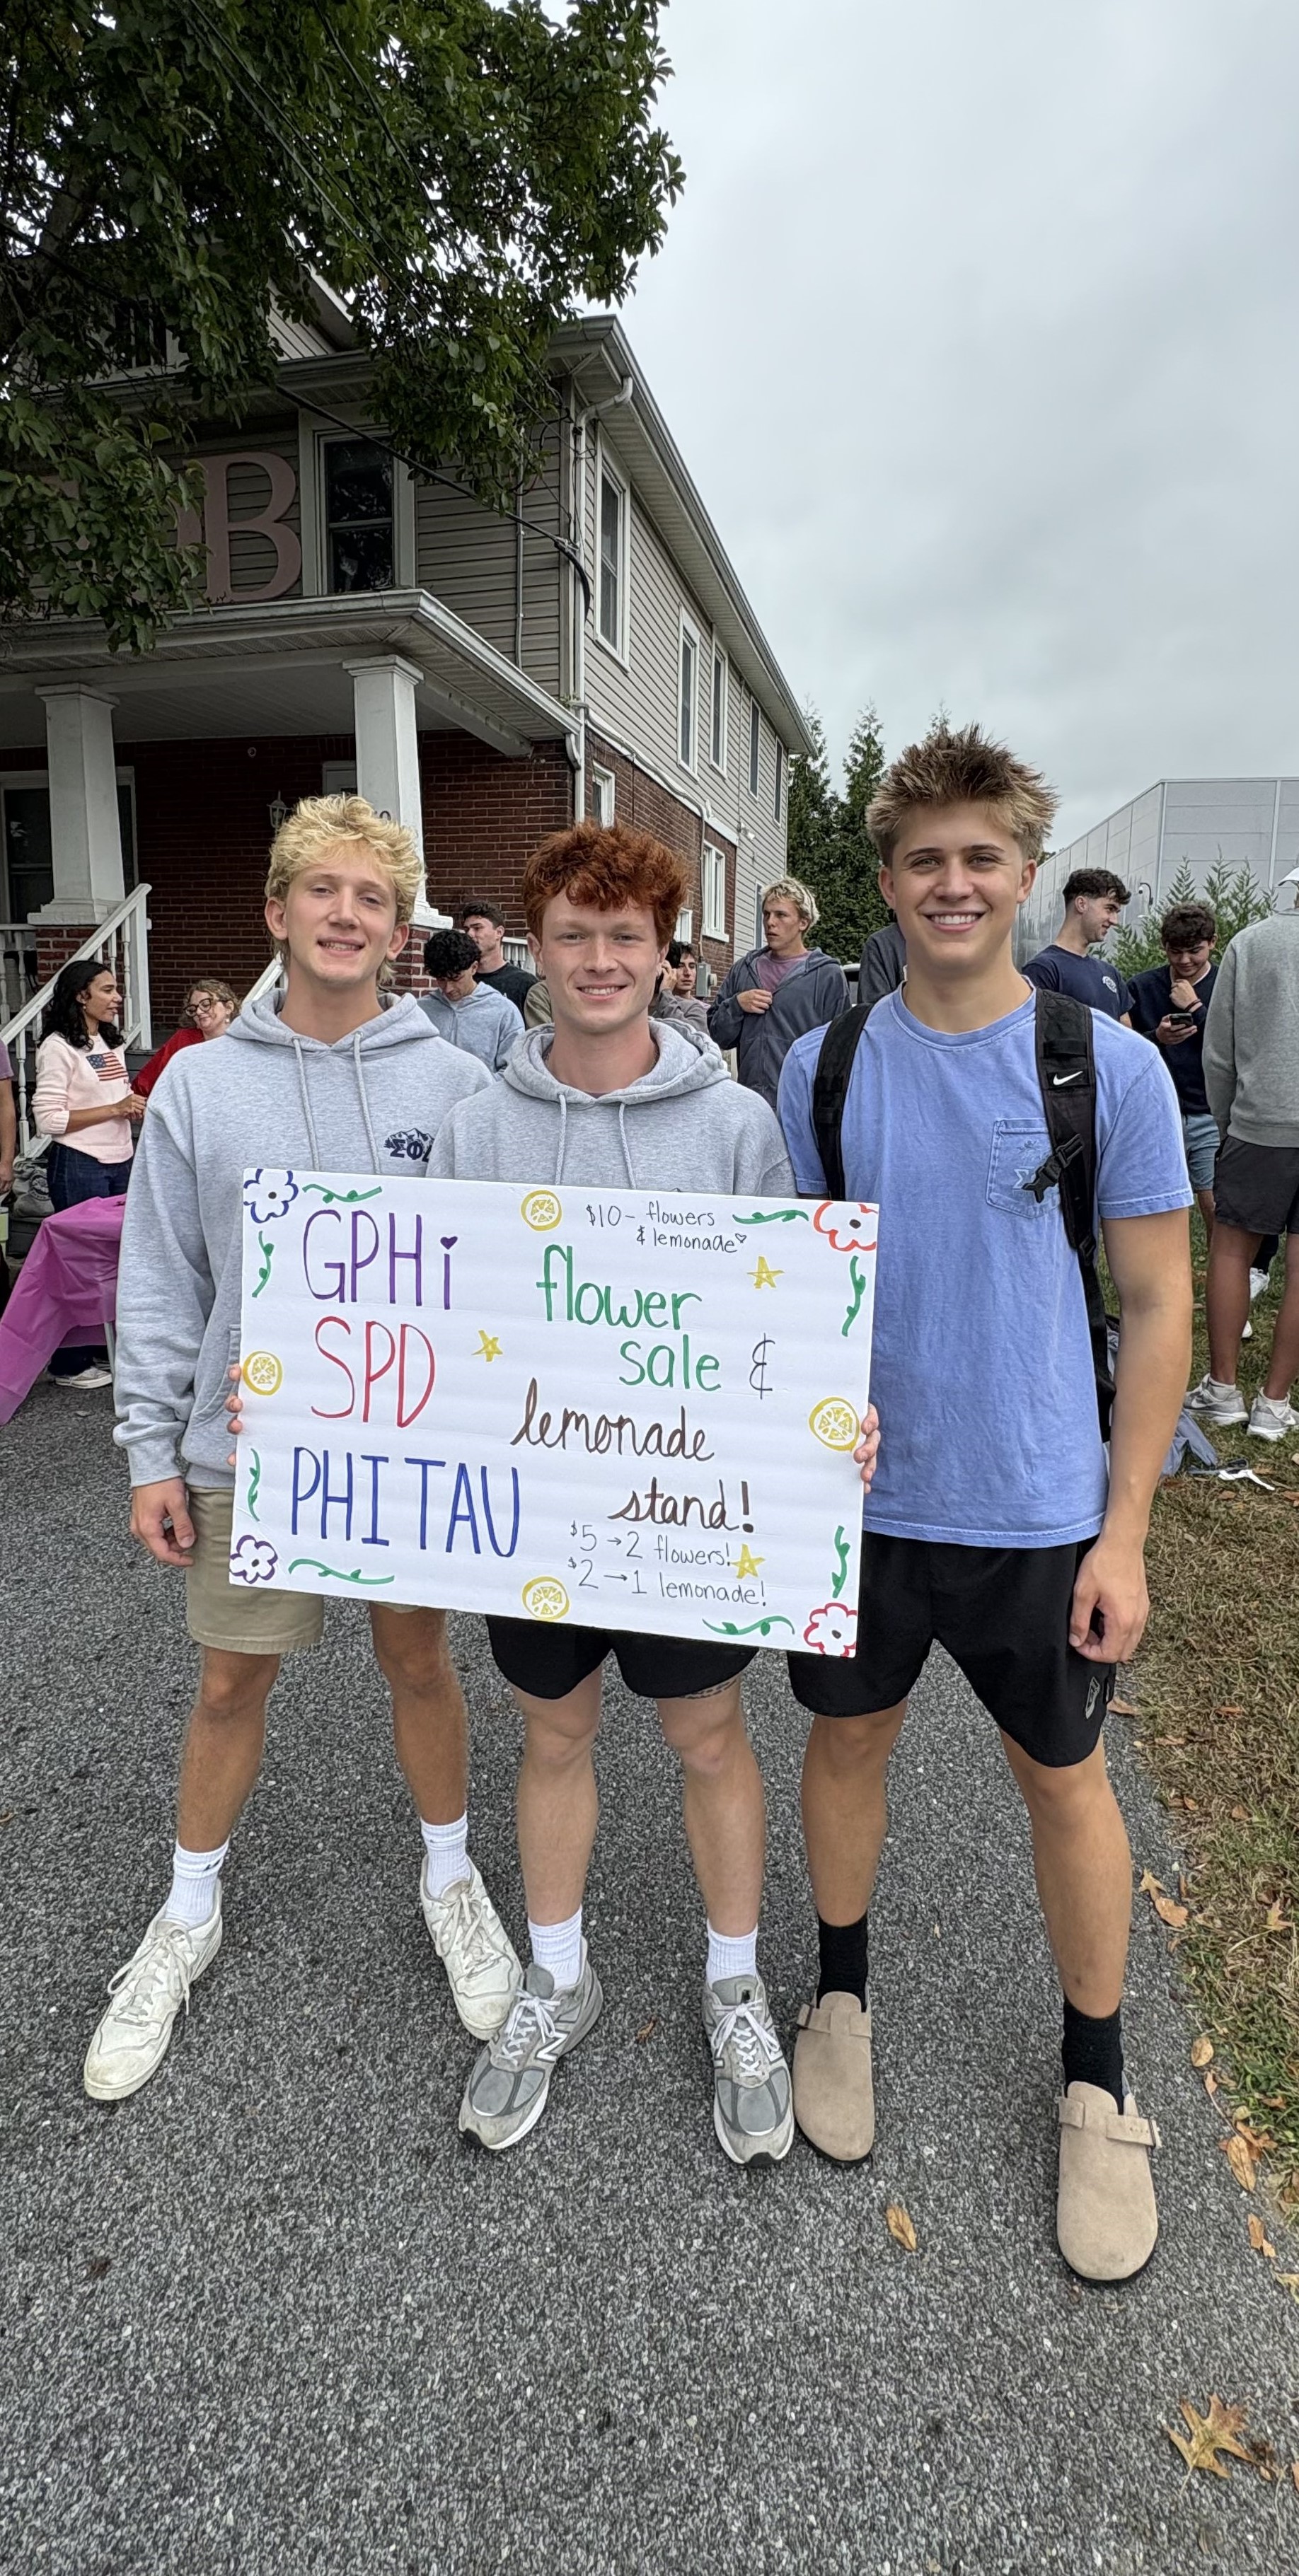 B
ΣΦΔ
GPHi
SPD
PHI TAU
$10 - flowers
& lemonade
flower
sale &
lemonade
stand!
$5 → 2 flowers!
$2 → 1 lemonade!